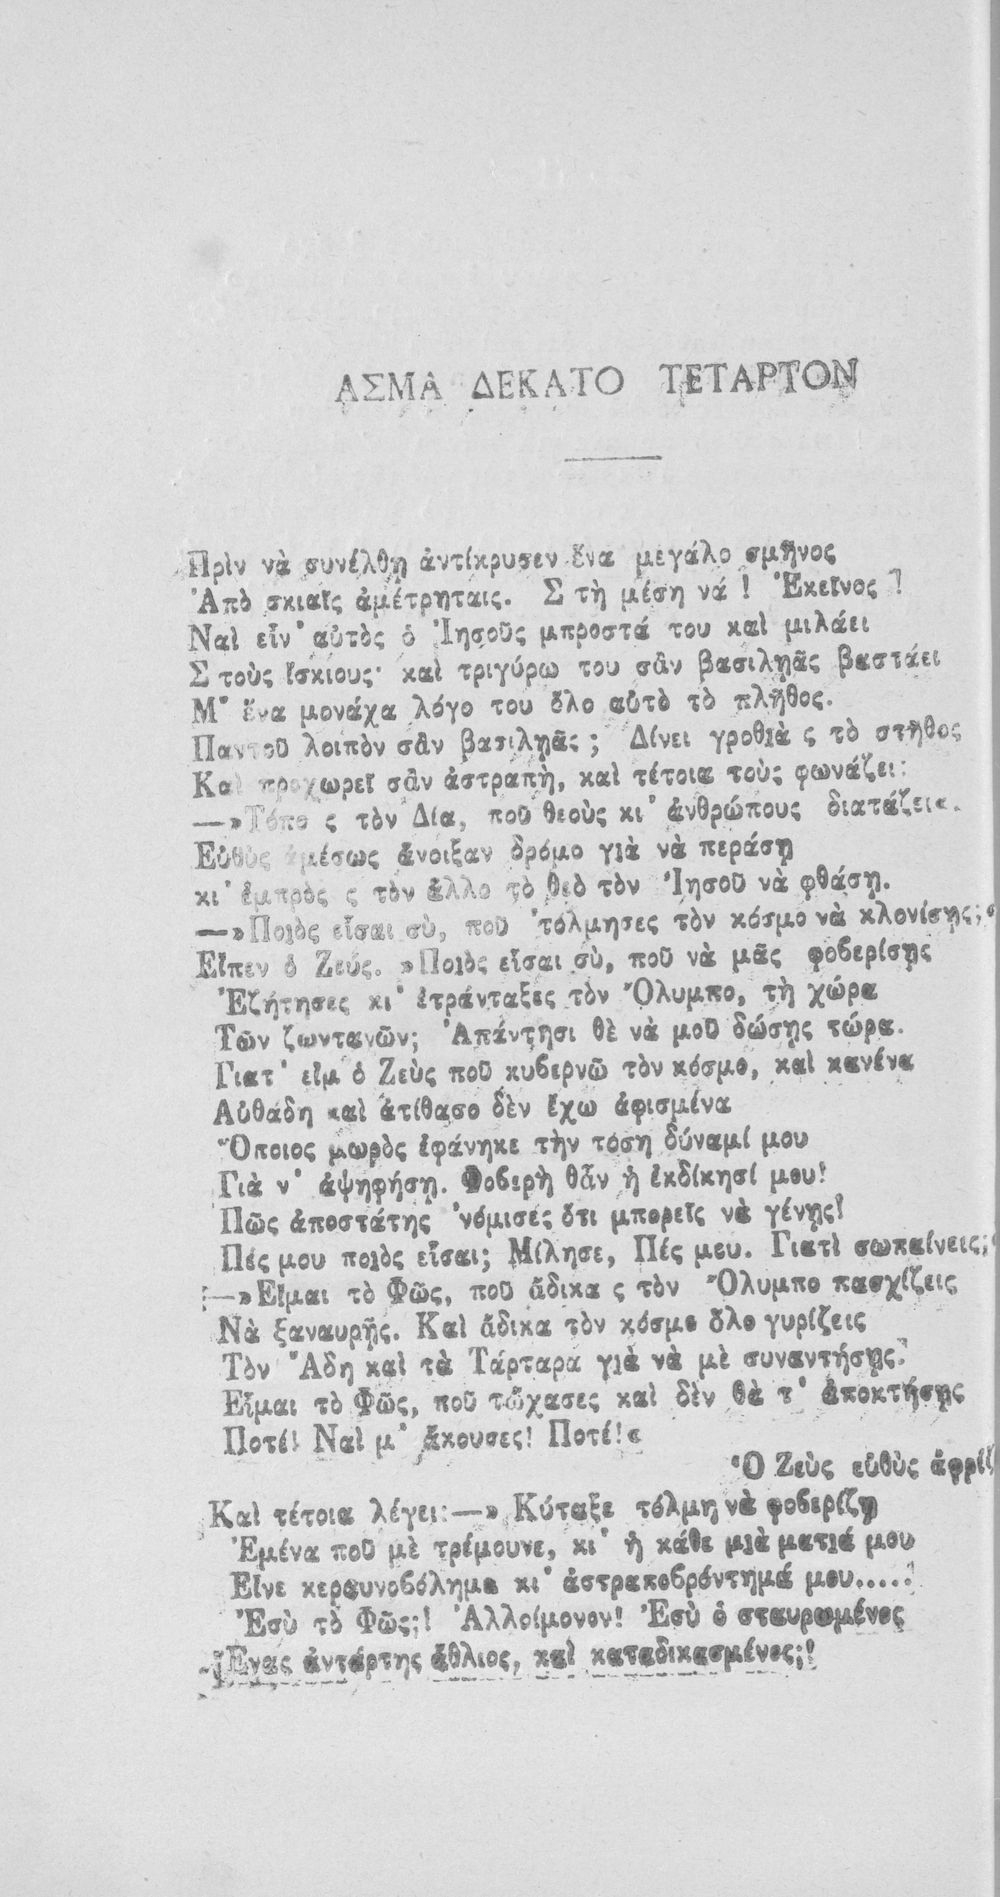 ΑΣΜΑ ΔΕΚΑΤΟ ΤΕΤΑΡΤΟΝ
Πρὶν νὰ συνέλθῃ ἀντίκρυσεν ἕνα μεγάλο σμῆνος
Ἀπὸ σκιαῖς ἀμέτρηταις. Σ τὴ μέση νά! Ἐκεῖνος!
Ναὶ εἶν' αὐτὸς ὁ Ἰησοῦς μπροστά του καὶ μιλάει
Σ τοὺς ἴσκιους· καὶ τριγύρω του σὰν βασιληᾶς βαστάει
Μ' ἕνα μονάχα λόγο του ὅλο αὐτὸ τὸ πλῆθος.
Παντοῦ λοιπὸν σὰν βασιληᾶς; Δίνει γροθιὰ ς τὸ στῆθος
Καὶ προχωρεῖ σὰν ἀστραπὴ, καὶ τέτοια τοὺς φωνάζει:
—»Τόπο ς τὸν Δία, ποῦ θεοὺς κι' ἀνθρώπους διατάζει«.
Εὐθὺς ἀμέσως ἄνοιξαν δρόμο γιὰ νὰ περάσῃ
κι' ἐμπρὸς ς τὸν ἄλλο τὸ θεὸ τὸν Ἰησοῦ νὰ φθάσῃ.
—»Ποιὸς εἶσαι σὺ, ποῦ 'τόλμησες τὸν κόσμο νὰ κλονίσῃς;«
Εἶπεν ὁ Ζεύς. »Ποιὸς εἶσαι σὺ, ποῦ νὰ μᾶς φοβερίσῃς
Ἐζήτησες κι' ἐτράνταξες τὸν Ὄλυμπο, τὴ χώρα
Τῶν ζωντανῶν; Ἀπάντησι θὲ νὰ μοῦ δώσῃς τώρα.
Γιατ' εἶμ ὁ Ζεὺς ποῦ κυβερνῶ τὸν κόσμο, καὶ κανένα
Αὐθάδη καὶ ἀτίθασο δὲν ἔχω ἀφισμένα
Ὅποιος μωρὸς ἐφάνηκε τὴν τόση δύναμί μου
Γιὰ ν' ἀψηφήσῃ. Φοβερὴ θἆν ἡ ἐκδίκησί μου!
Πῶς ἀποστάτης 'νόμισες ὅτι μπορεῖς νὰ γένῃς!
Πές μου ποιὸς εἶσαι; Μίλησε, Πές μου. Γιατὶ σωπαίνεις;«
—»Εἶμαι τὸ Φῶς, ποῦ ἄδικα ς τὸν Ὄλυμπο πασχίζεις
Νὰ ξαναυρῇς. Καὶ ἄδικα τὸν κόσμο ὅλο γυρίζεις
Τὸν Ἄδη καὶ τὰ Τάρταρα γιὰ νὰ μὲ συναντήσῃς.
Εἶμαι τὸ Φῶς, ποῦ τὤχασες καὶ δὲν θὰ τ' ἀποκτήσῃς
Ποτέ! Ναὶ μ' ἄκουσες! Ποτέ!«
Ὁ Ζεὺς εὐθὺς
Καὶ τέτοια λέγει:—» Κύταξε τόλμη νὰ φοβερίζῃ
Ἐμένα ποῦ μὲ τρέμουνε, κι' ἡ κάθε μιὰ ματιά μου
Εἶνε κεραυνοβόλημα κι' ἀστραποβρόντημά μου.....
Ἐσὺ τὸ Φῶς;! Ἀλλοίμονον! Ἐσὺ ὁ σταυρωμένος
Ἕνας ἀντάρτης ἄθλιος, καὶ καταδικασμένος;!